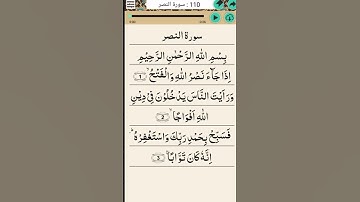 110 : سورة النصر
سورة النصر
بِسْمِ اللهِ الرَّحْمٰنِ الرَّحِيْمِ
اِذَا جَآءَ نَصْرُ اللهِ وَالْفَتْحُ ۙ 1
وَرَاَيْتَ النَّاسَ يَدْخُلُوْنَ فِيْ دِيْنِ
اللهِ اَفْوَاجًا ۙ 2
فَسَبِّحْ بِحَمْدِ رَبِّكَ وَاسْتَغْفِرْهُ ؕ
اِنَّهٗ كَانَ تَوَّابًا ۧ 3